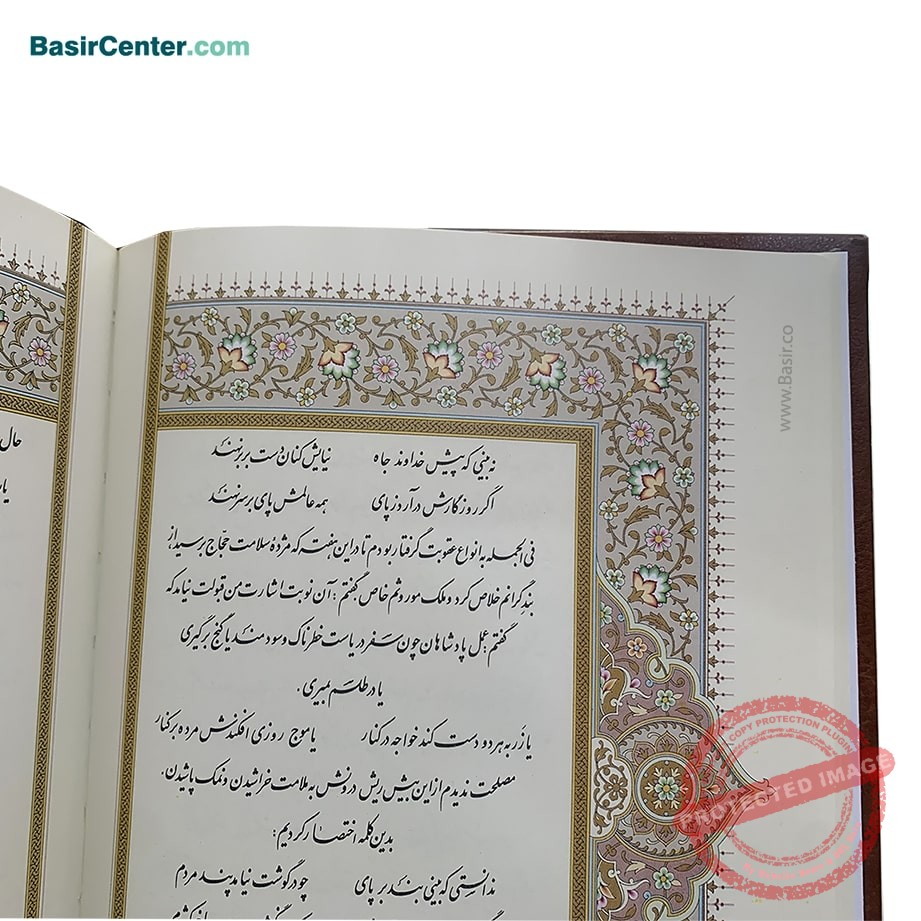 BasirCenter.com
www.Basir.co
حال
نه بینی که پیش خداوند جاه نیایش کنان دست بر بر نهند
اگر روزگارش درآرد ز پای همه عالمش پای بر سر نهند
فی الجمله به انواع عقوبت گرفتار بودم تا در این هفته که مژدهٔ سلامت حجّاج برسید، از
بند گرانم خلاص کرد و ملک موروثم خاص گفتم: آن نوبت اشارت من قبولت نیامد که
گفتم: عمل پادشاهان چون سفر دریاست خطرناک و سودمند یا گنج برگیری
یا در طلسم بمیری.
یا زر به هر دو دست کند خواجه در کنار یا موج روزی افکندش مرده بر کنار
مصلحت ندیدم از این بیش ریش درونش به ملامت خراشیدن و نمک پاشیدن.
بدین کلمه اختصار کردیم:
ندانستی که بینی بند بر پای چو در گوشت نیامد پند مردم
COPY PROTECTION PLUGIN
PROTECTED IMAGE